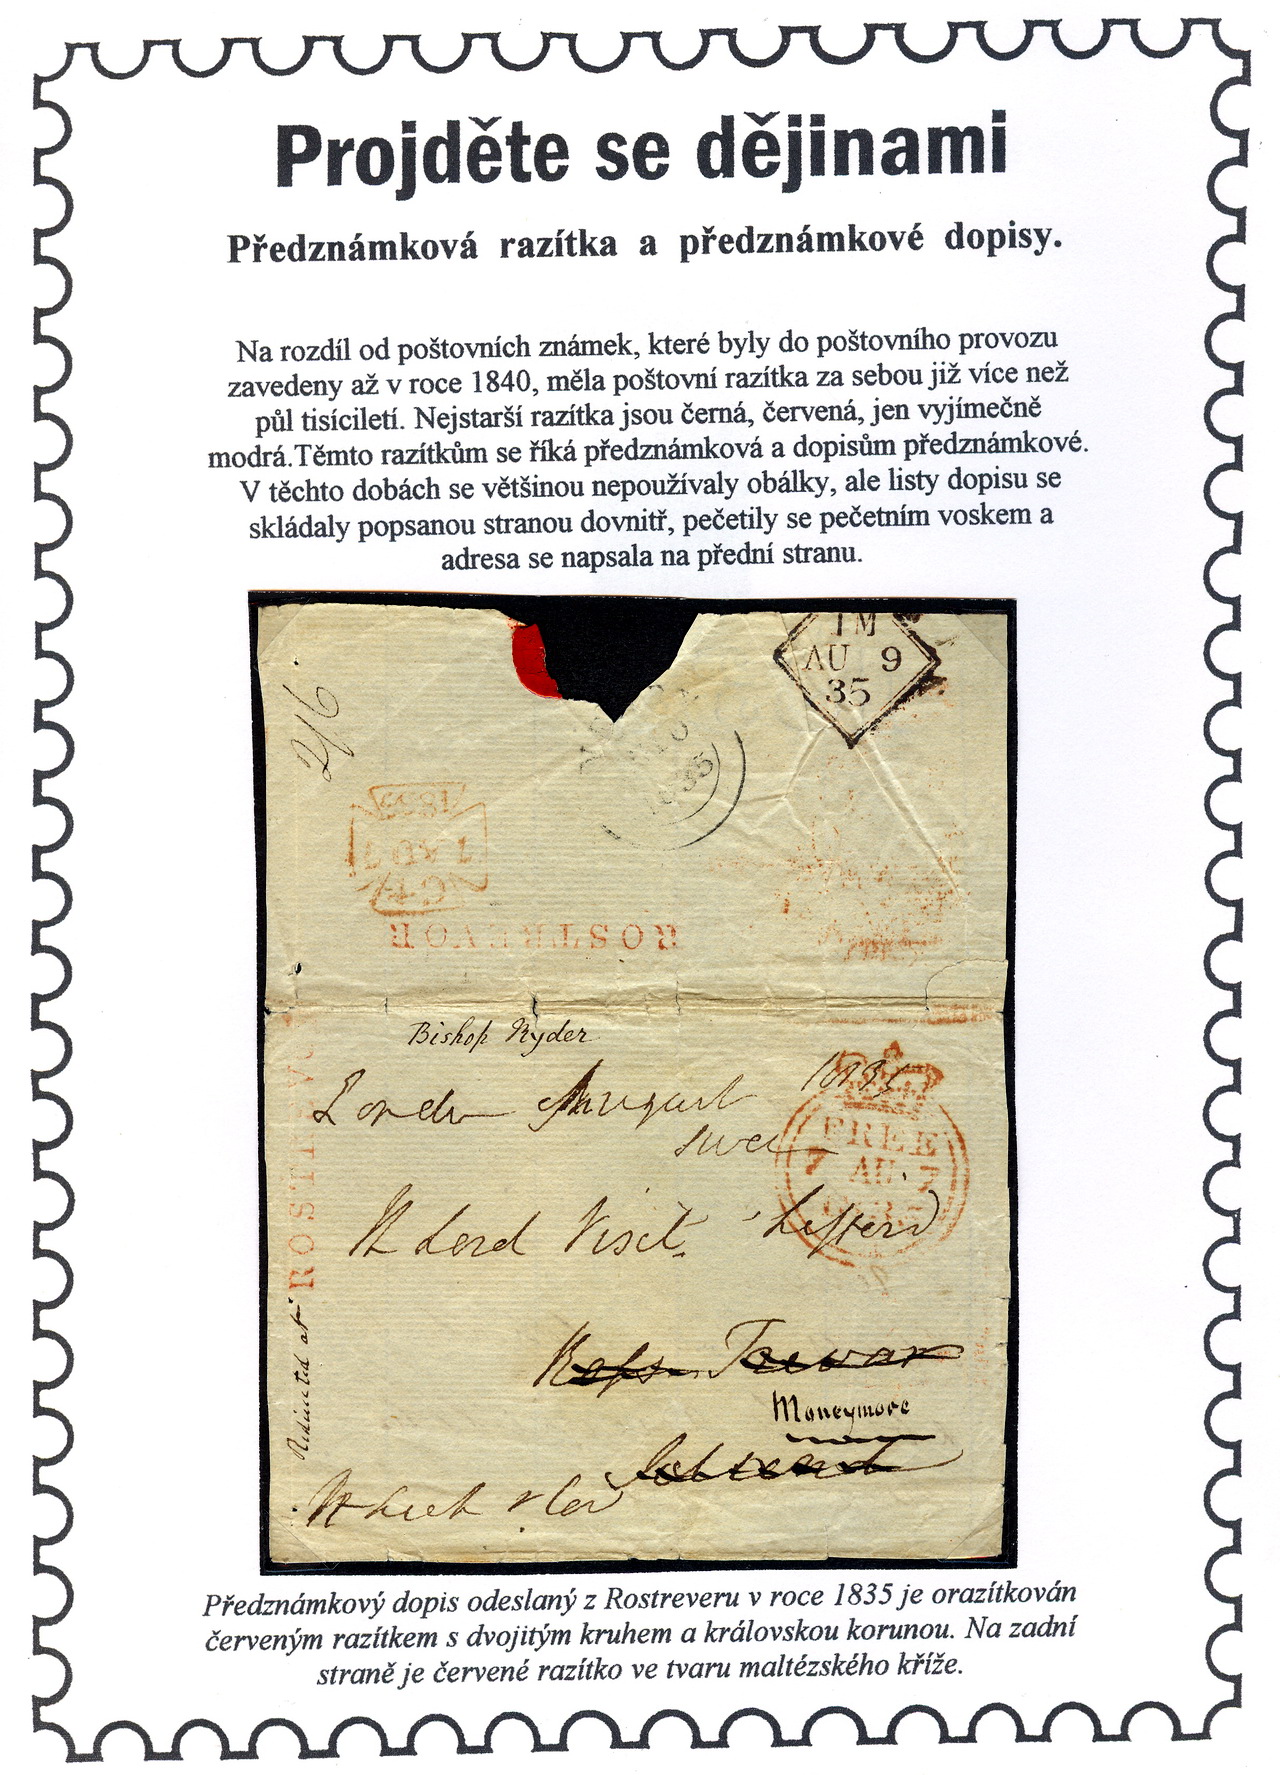 Projděte se dějinami
Předznámková razítka a předznámkové dopisy.
Na rozdíl od poštovních známek, které byly do poštovního provozu
zavedeny až v roce 1840, měla poštovní razítka za sebou již více než
půl tisíciletí. Nejstarší razítka jsou černá, červená, jen vyjímečně
modrá.Těmto razítkům se říká předznámková a dopisům předznámkové.
V těchto dobách se většinou nepoužívaly obálky, ale listy dopisu se
skládaly popsanou stranou dovnitř, pečetily se pečetním voskem a
adresa se napsala na přední stranu.
AU 9
35
2/6
1835
ROSTREVOR
Bishop Ryder
London August 1835
FREE
AU
ROSTREVOR
Lord Visct. Lifford
Moneymore
Ireland
Předznámkový dopis odeslaný z Rostreveru v roce 1835 je orazítkován
červeným razítkem s dvojitým kruhem a královskou korunou. Na zadní
straně je červené razítko ve tvaru maltézského kříže.